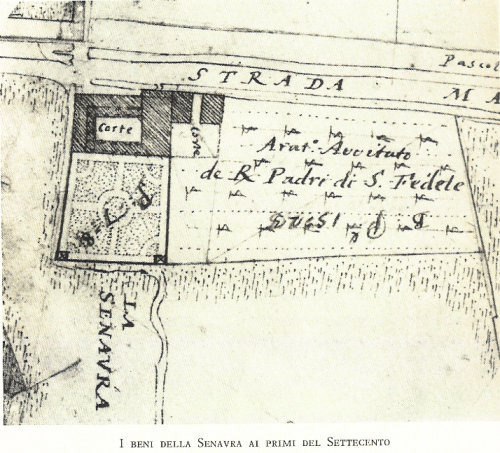 Pascol
STRADA
MA
Corte
Corte
Arat.º Avvitato
de R Padri di S. Fedele
LA
SENAVRA
I BENI DELLA SENAVRA AI PRIMI DEL SETTECENTO